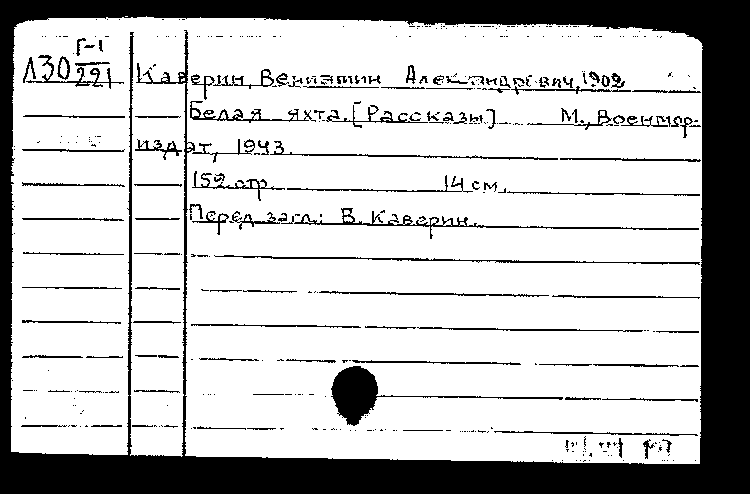 Л30 Г-1/221 Каверин, Вениамин Александрович, 1902
Белая яхта. [Рассказы] М., Военмор-
издат, 1943.
152 стр. 14 см.
Перед загл.: В. Каверин.